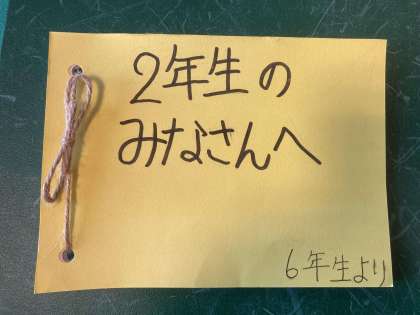 2年生の
みなさんへ
6年生より